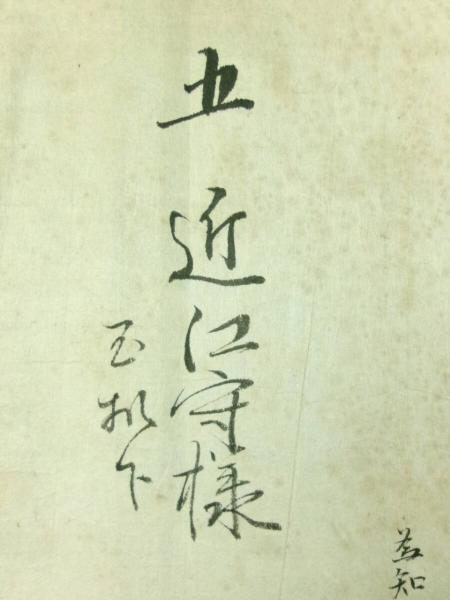 五 近江守様
玉机下
知